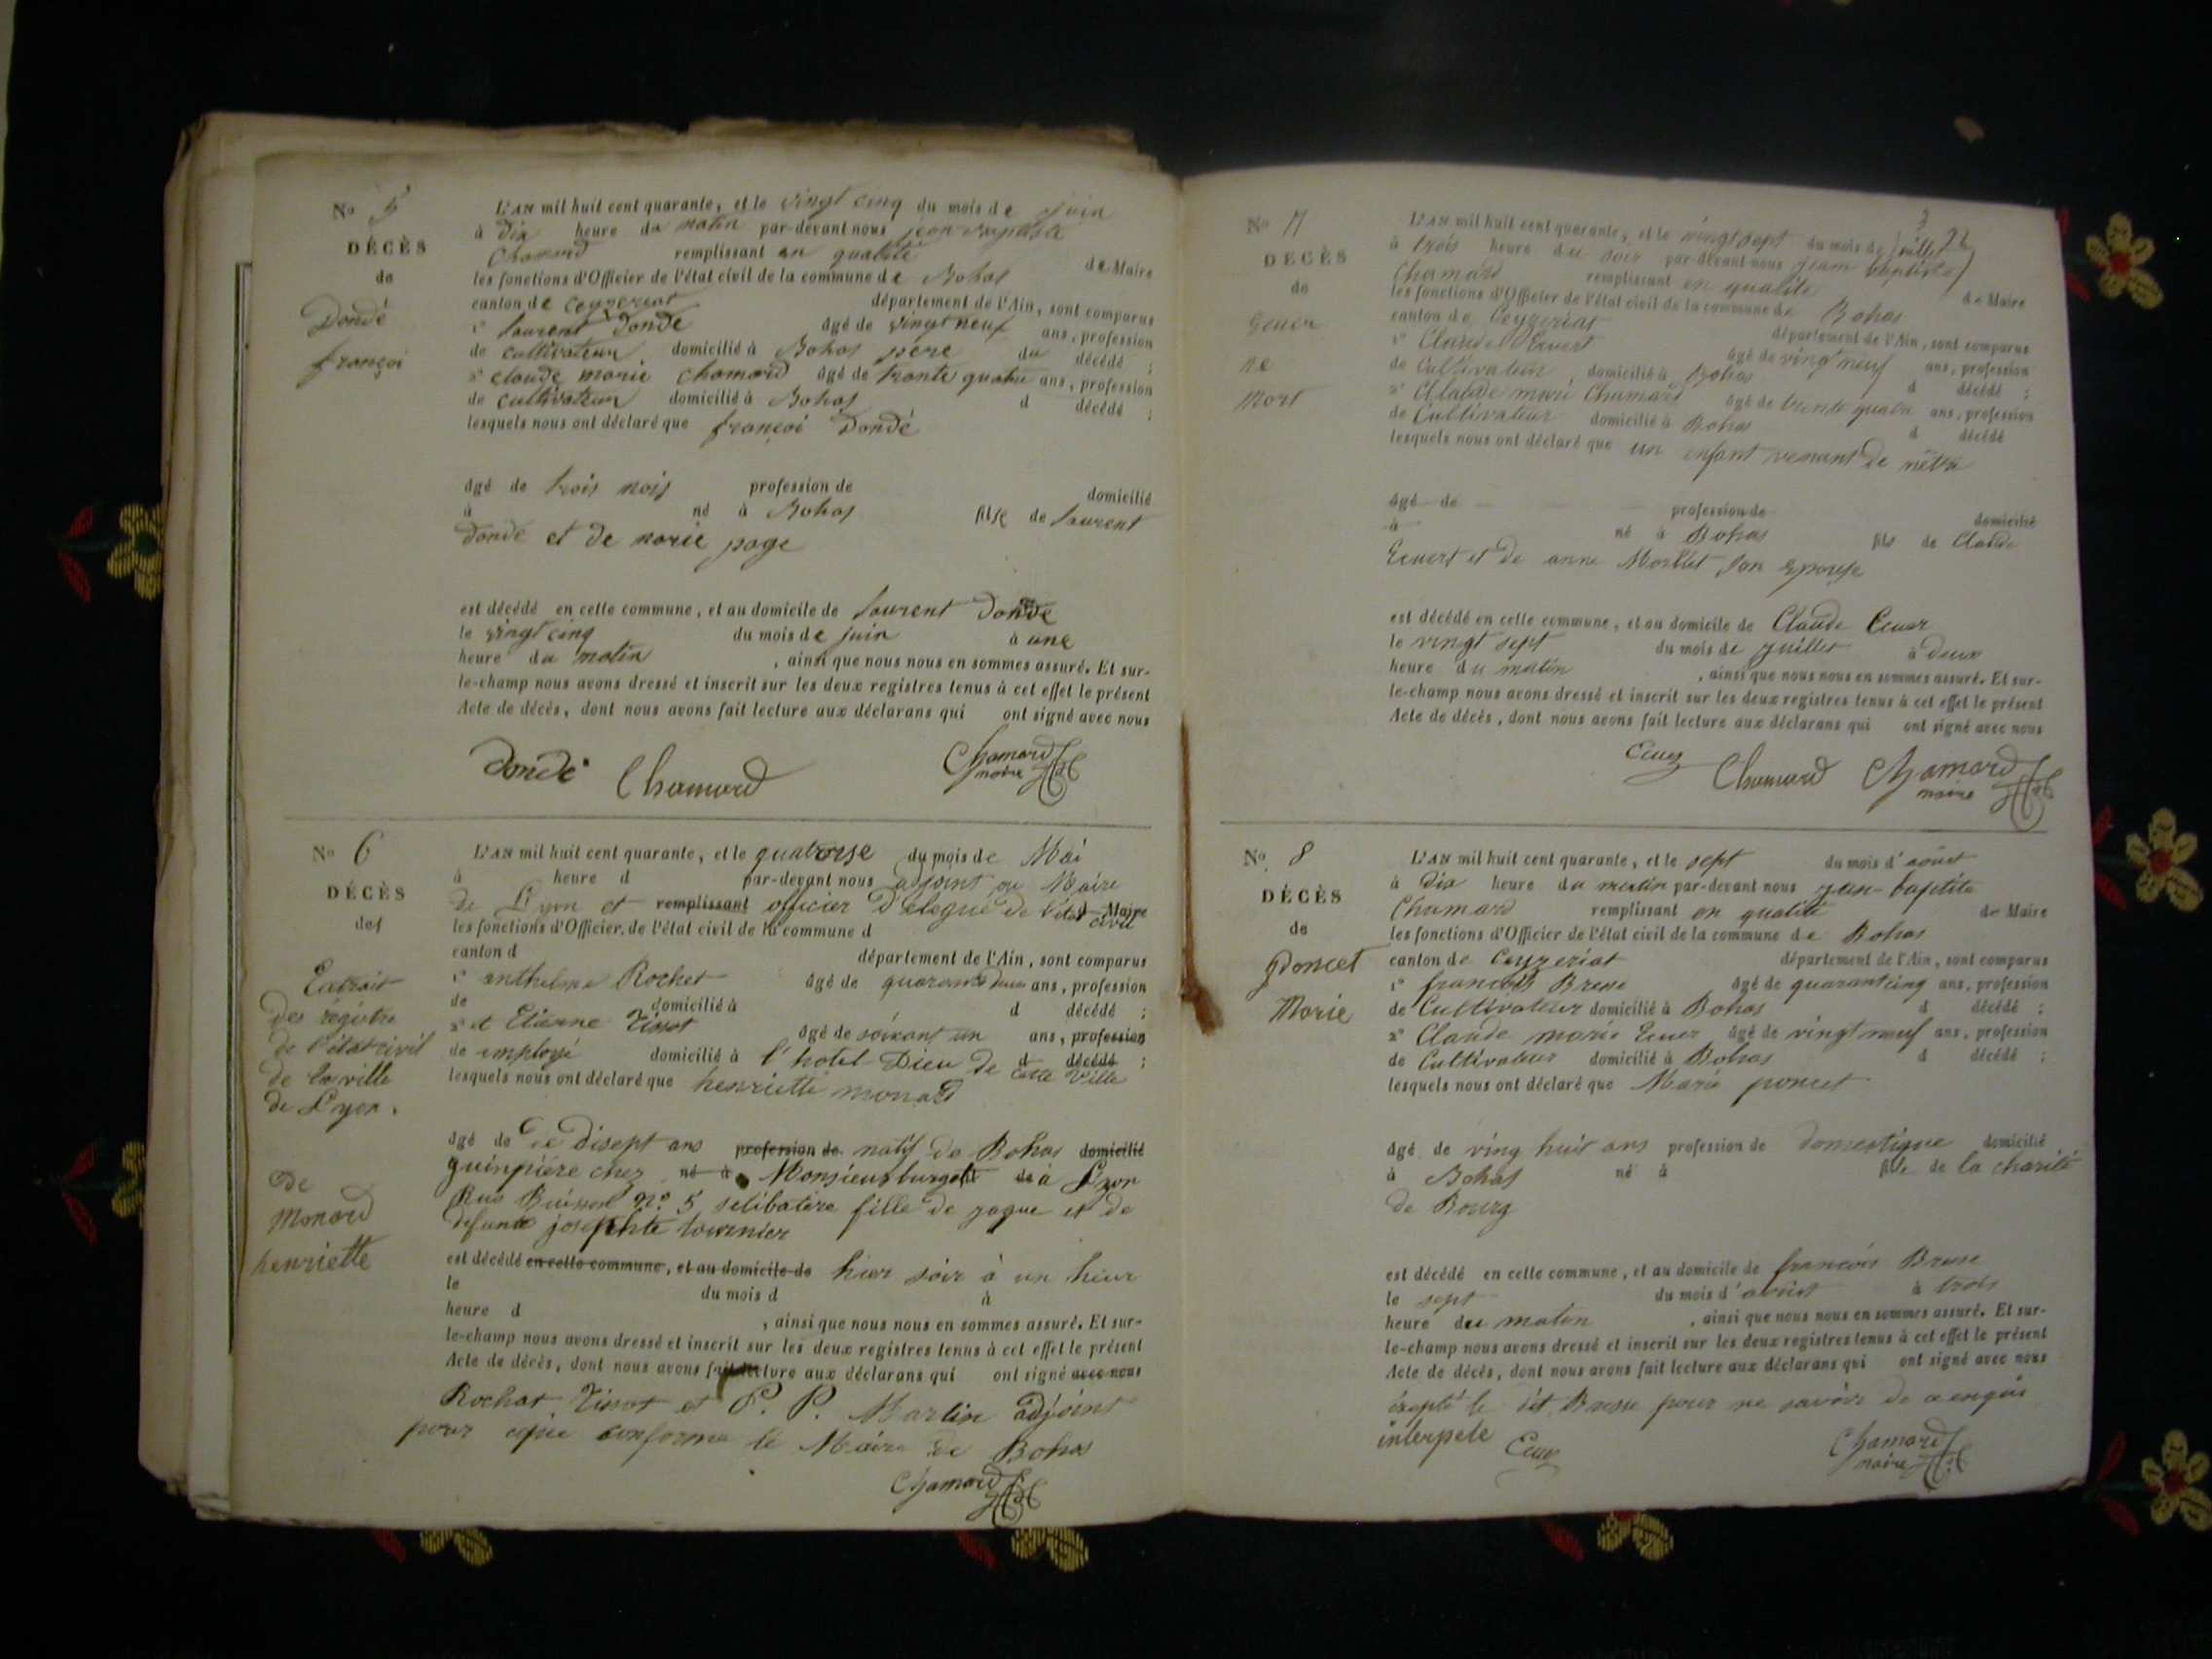 No 5
DÉCÈS
de
Dondé
françoi
L'AN mil huit cent quarante, et le vingt cinq du mois de juin
à dix heure du matin par-devant nous jean baptiste
Chamard remplissant en qualité de Maire
les fonctions d'Officier de l'état civil de la commune de Bohas
canton de Ceyzeriat département de l'Ain, sont comparus
1º laurent Dondé âgé de vingt neuf ans, profession
de cultivateur domicilié à Bohas père du décédé ;
2º claude marie chamard âgé de trante quatre ans, profession
de cultivateur domicilié à Bohas d décédé ;
lesquels nous ont déclaré que françoi Dondé
âgé de trois mois profession de domicilié
à né à Bohas fils de laurent
dondé et de marie page
est décédé en cette commune, et au domicile de laurent Dondé
le vingt cinq du mois de juin à une
heure du matin , ainsi que nous nous en sommes assuré. Et sur-
le-champ nous avons dressé et inscrit sur les deux registres tenus à cet effet le présent
Acte de décès, dont nous avons fait lecture aux déclarans qui ont signé avec nous
Dondé Chamard Chamard
maire
No 6
DÉCÈS
des
Extrait
des régistre
de l'état civil
de la ville
de Lyon.
De
Monard
henriette
L'AN mil huit cent quarante, et le quatorse du mois de Mai
à heure d par-devant nous adjoint au Maire
de Lyon et remplissant officier d'elegué de l'état Maire civil
les fonctions d'Officier de l'état civil de la commune d
canton d département de l'Ain, sont comparus
1º anthelme Rochet âgé de quarante deux ans, profession
de domicilié à d décédé ;
2º et Etienne Tissot âgé de soixant un ans, profession
de employé domicilié à l'hotel Dieu de d décédé ; cette Ville
lesquels nous ont déclaré que henriette monard
âgé de de disept ans profession de natif de Bohas domicilié
guinpière chez né à Monsieur de à Lyon
Rue Buisson no 5 selibatère fille de jaque et de
defunte josephte tournier
est décédé en cette commune, et au domicile de hier soir à un heur
le du mois d à
heure d , ainsi que nous nous en sommes assuré. Et sur-
le-champ nous avons dressé et inscrit sur les deux registres tenus à cet effet le présent
Acte de décès, dont nous avons fait lecture aux déclarans qui ont signé avec nous
Rochat Tissot et P. P. Martin adjoint
pour copie conforme le Maire de Bohas
Chamard
No 7
DÉCÈS
de
Ecuer
né
Mort
L'AN mil huit cent quarante, et le vingt sept du mois de juillet
à trois heure du soir par-devant nous jean baptiste
Chamard remplissant en qualité de Maire
les fonctions d'Officier de l'état civil de la commune de Bohas
canton de Ceyzeriat département de l'Ain, sont comparus
1º Claude Ecuert âgé de vingt neuf ans, profession
de Cultivateur domicilié à Bohas d décédé ;
2º Claude marie Chamard âgé de trente quatre ans, profession
de Cultivateur domicilié à Bohas d décédé
lesquels nous ont déclaré que un enfant venant de nêtre
âgé de profession de domicilié
à né à Bohas fils de Claude
Ecuert et de anne Morlet son epouse
est décédé en cette commune, et au domicile de Claude Ecuer
le vingt sept du mois de juillet à deux
heure du matin , ainsi que nous nous en sommes assuré. Et sur-
le-champ nous avons dressé et inscrit sur les deux registres tenus à cet effet le présent
Acte de décès, dont nous avons fait lecture aux déclarans qui ont signé avec nous
Ecuer Chamard Chamard
maire
No 8
DÉCÈS
de
Poncet
Marie
L'AN mil huit cent quarante, et le sept du mois d'août
à dix heure du matin par-devant nous jean-baptite
Chamard remplissant en qualité de Maire
les fonctions d'Officier de l'état civil de la commune de Bohas
canton de Ceyzeriat département de l'Ain, sont comparus
1º francois Bresse âgé de quarantcinq ans, profession
de Cultivateur domicilié à Bohas d décédé ;
2º Claude marie Ecuer âgé de vingt neuf ans, profession
de Cultivateur domicilié à Bohas d décédé ;
lesquels nous ont déclaré que Marie poncet
âgé de ving huit ans profession de domestique domicilié
à Bohas né à fille de la charité
de Bourg
est décédé en cette commune, et au domicile de francois Bresse
le sept du mois d'août à trois
heure du maten , ainsi que nous nous en sommes assuré. Et sur-
le-champ nous avons dressé et inscrit sur les deux registres tenus à cet effet le présent
Acte de décès, dont nous avons fait lecture aux déclarans qui ont signé avec nous
éxepté le dit Bresse pour ne savoir de
interpele Ecuer Chamard
maire